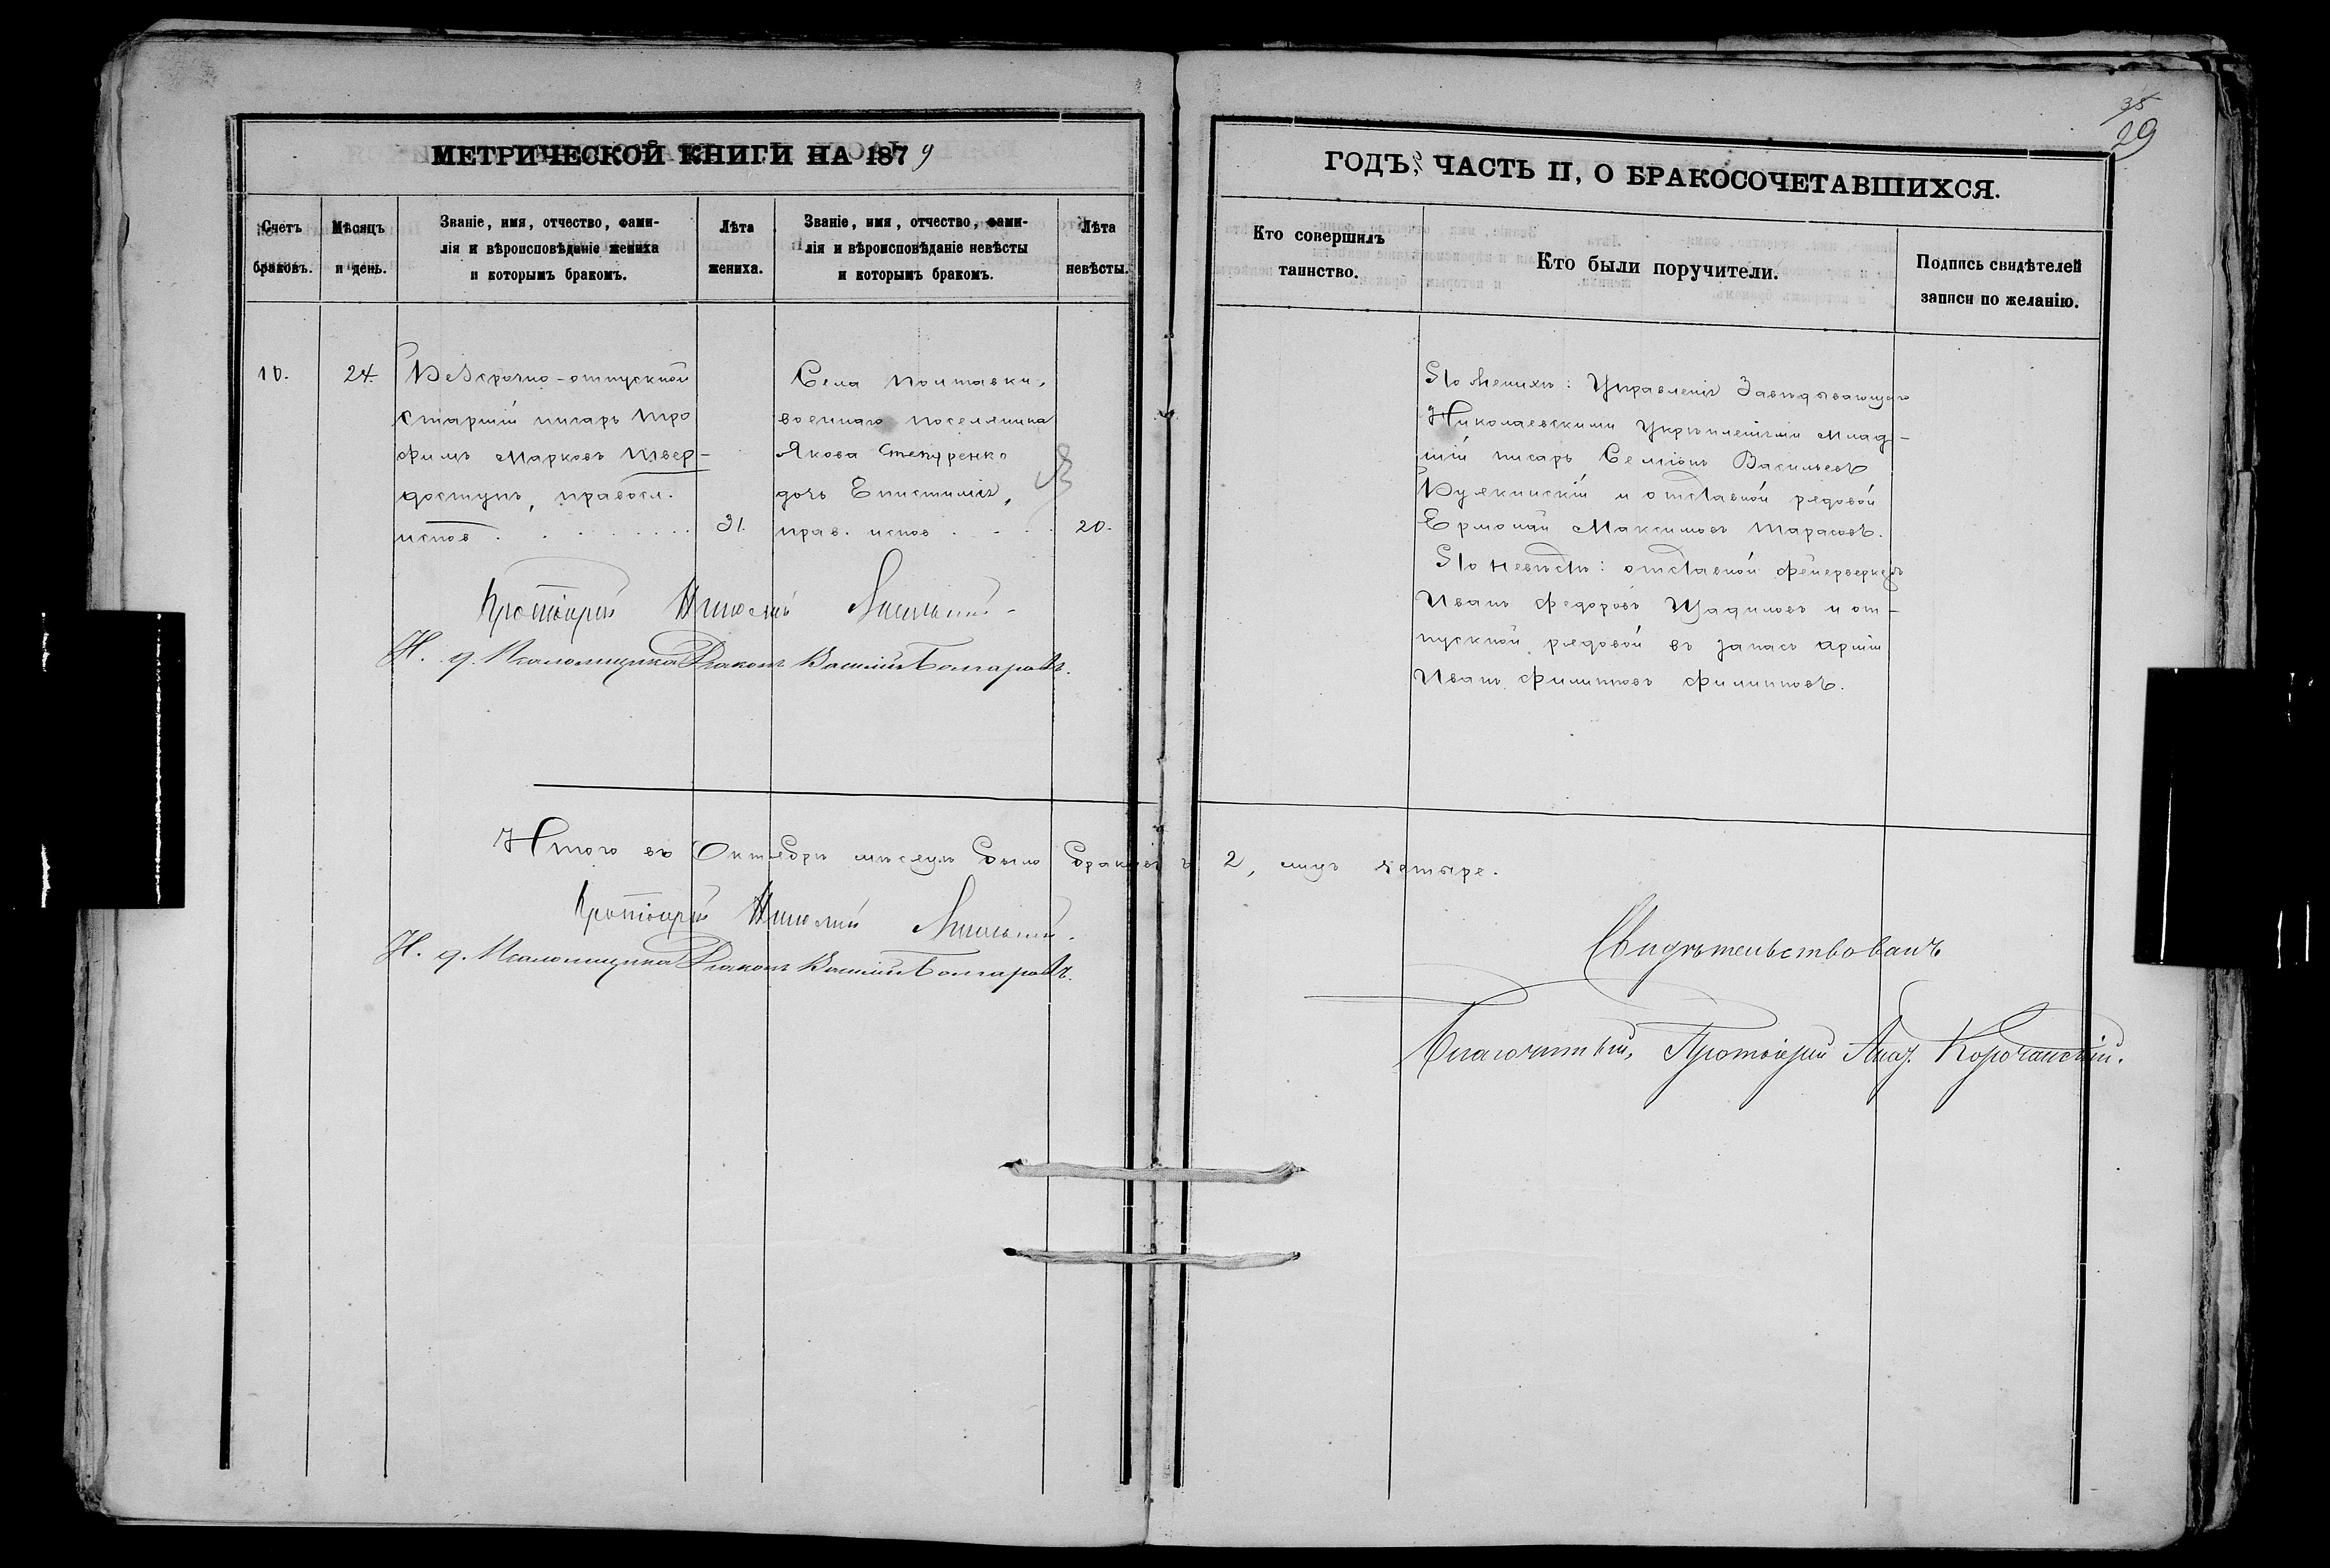 35
29
МЕТРИЧЕСКОЙ КНИГИ НА 1879
ГОДЪ, ЧАСТЬ II, О БРАКОСОЧЕТАВШИХСЯ.
Счетъ
браковъ.
Мѣсяцъ
и день.
Званіе, имя, отчество, фами-
лія и вѣроисповѣданіе жениха
и которымъ бракомъ.
Лѣта
жениха.
Званіе, имя, отчество, фами-
лія и вѣроисповѣданіе невѣсты
и которымъ бракомъ.
Лѣта
невѣсты.
Кто совершилъ
таинство.
Кто были поручители.
Подпись свидѣтелей
записи по желанію.
10.
24.
Безсрочно-отпускной
старшій писарь Тро
фимъ Марковъ Твер-
доступъ, правосл.
испов
31.
Села Полтавки,
военнаго поселянина
Якова
дочь Епистимія,
прав. испов
20.
По женихѣ: Управленія Завѣдывающаго
Николаевскими Укрѣпленіями Млад-
шій писарь Семіонъ Васильевъ
и отставной рядовой
Ермолай Максимовъ Тарасовъ.
По невѣстѣ: отставной фейерверкеръ
Иванъ Федоровъ Щадиловъ и от-
пускной рядовой въ запасъ арміи
Иванъ Филиповъ Филиповъ.
Протоіерей Николай
Н. д. Псаломщика Діаконъ Василій Болгаровъ.
Итого въ Октябрѣ мѣсяцѣ было браковъ 2, лицъ четыре.
Протоіерей Николай
Н. д. Псаломщика Діаконъ Василій Болгаровъ.
Свидѣтельствовалъ
Благочинный, Протоіерей Корочанскій.